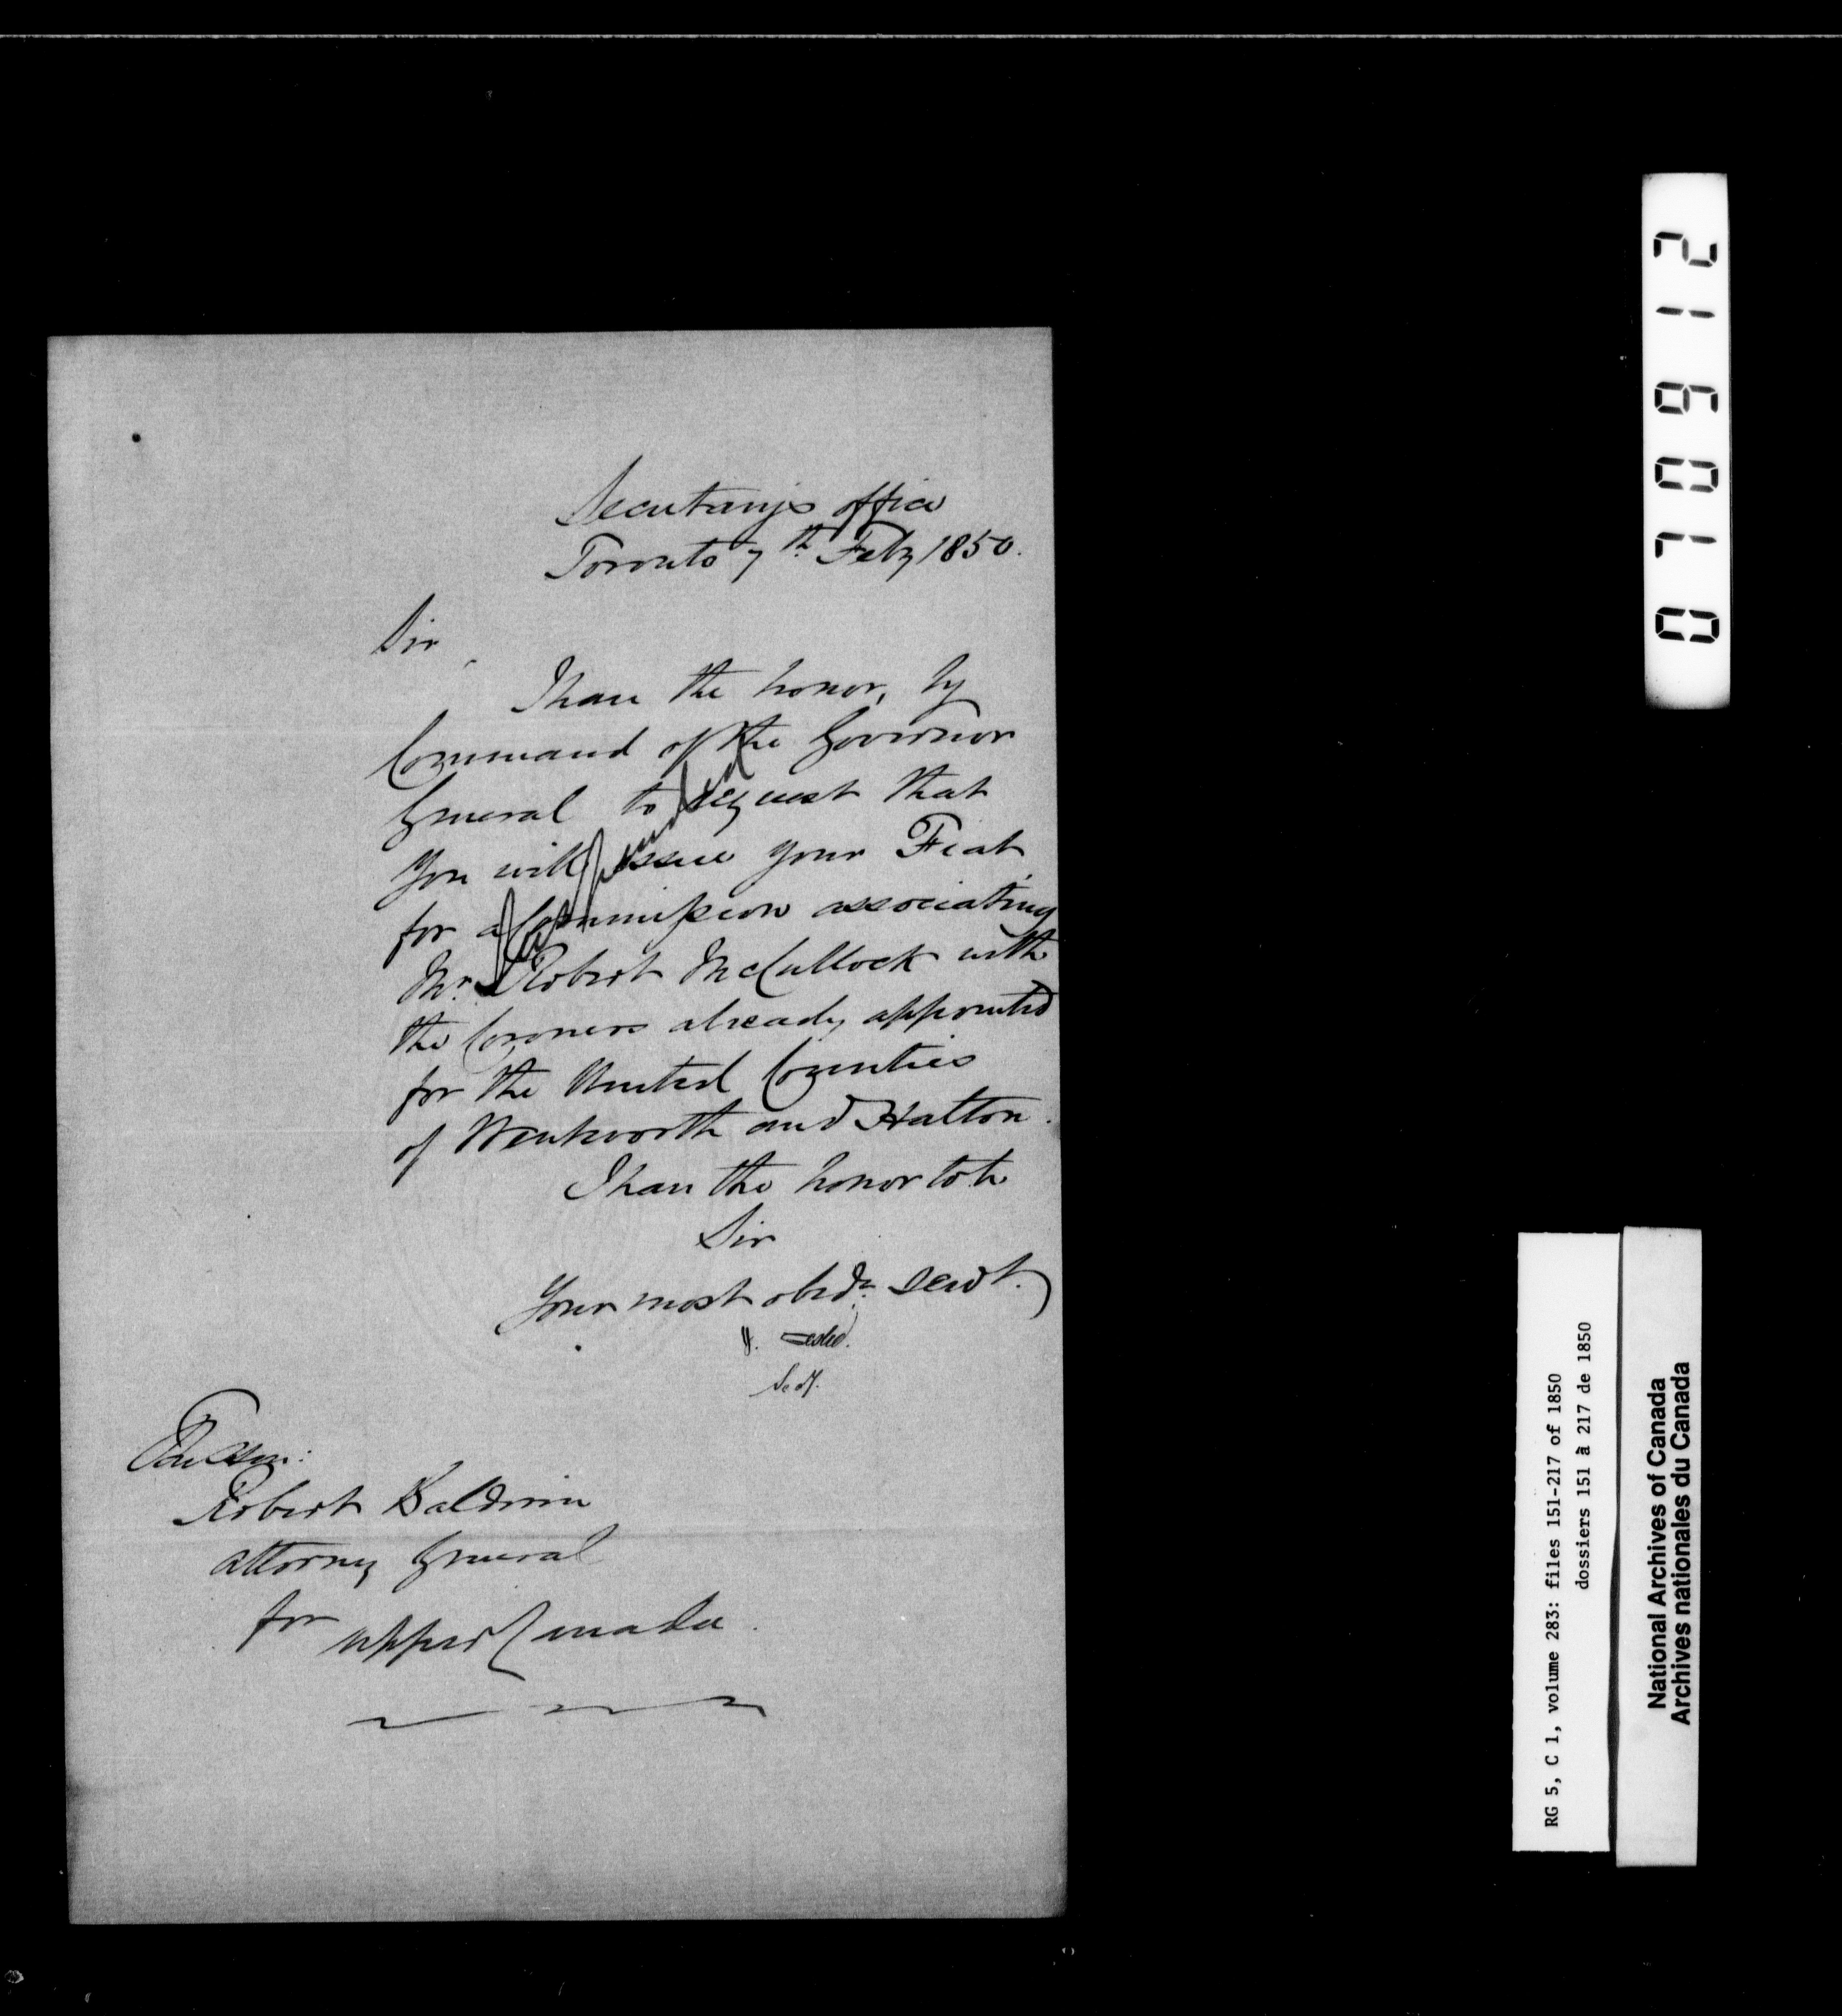 Secretary's office
Toronto 7th Feby 1850.
Sir,
I have the honor, by
Command of the Governor
General to request that
You will issue your Fiat
for a Commission associating
Mr. Robert McCullock with
the Coroners already appointed
for the United Counties
of Wentworth and Halton.
I have the honor to be
Sir
Your most obedt. servt.
J. Leslie.
Secy.
The Hon:
Robert Baldwin
Attorney General
for Upper Canada.
070912
RG 5, C 1, volume 283: files 151-217 of 1850
dossiers 151 à 217 de 1850
National Archives of Canada
Archives nationales du Canada